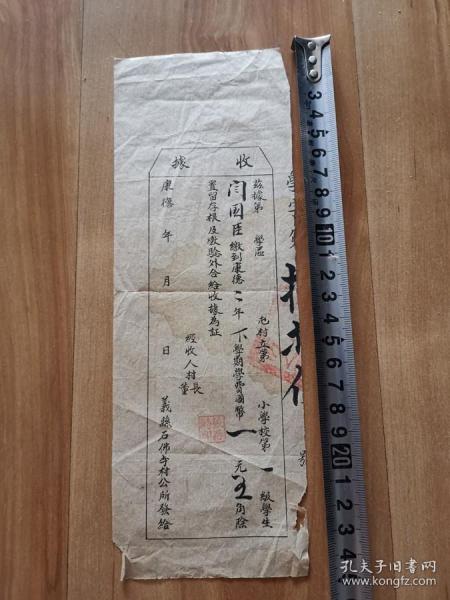 收據
茲據第 學區 屯村立第 小學校第一級學生
闫国臣繳到康德二年下學期學費國幣一元五角除
置留存根及繳驗外合給收據為証
經收人村長
董
康德 年 月 日 義縣石佛寺村公所發給
學字第
號
3 4 5 6 7 8 9 10 1 2 3 4 5 6 7 8 9 20 1 2 3 4 5
孔夫子旧书网
www.kongfz.com